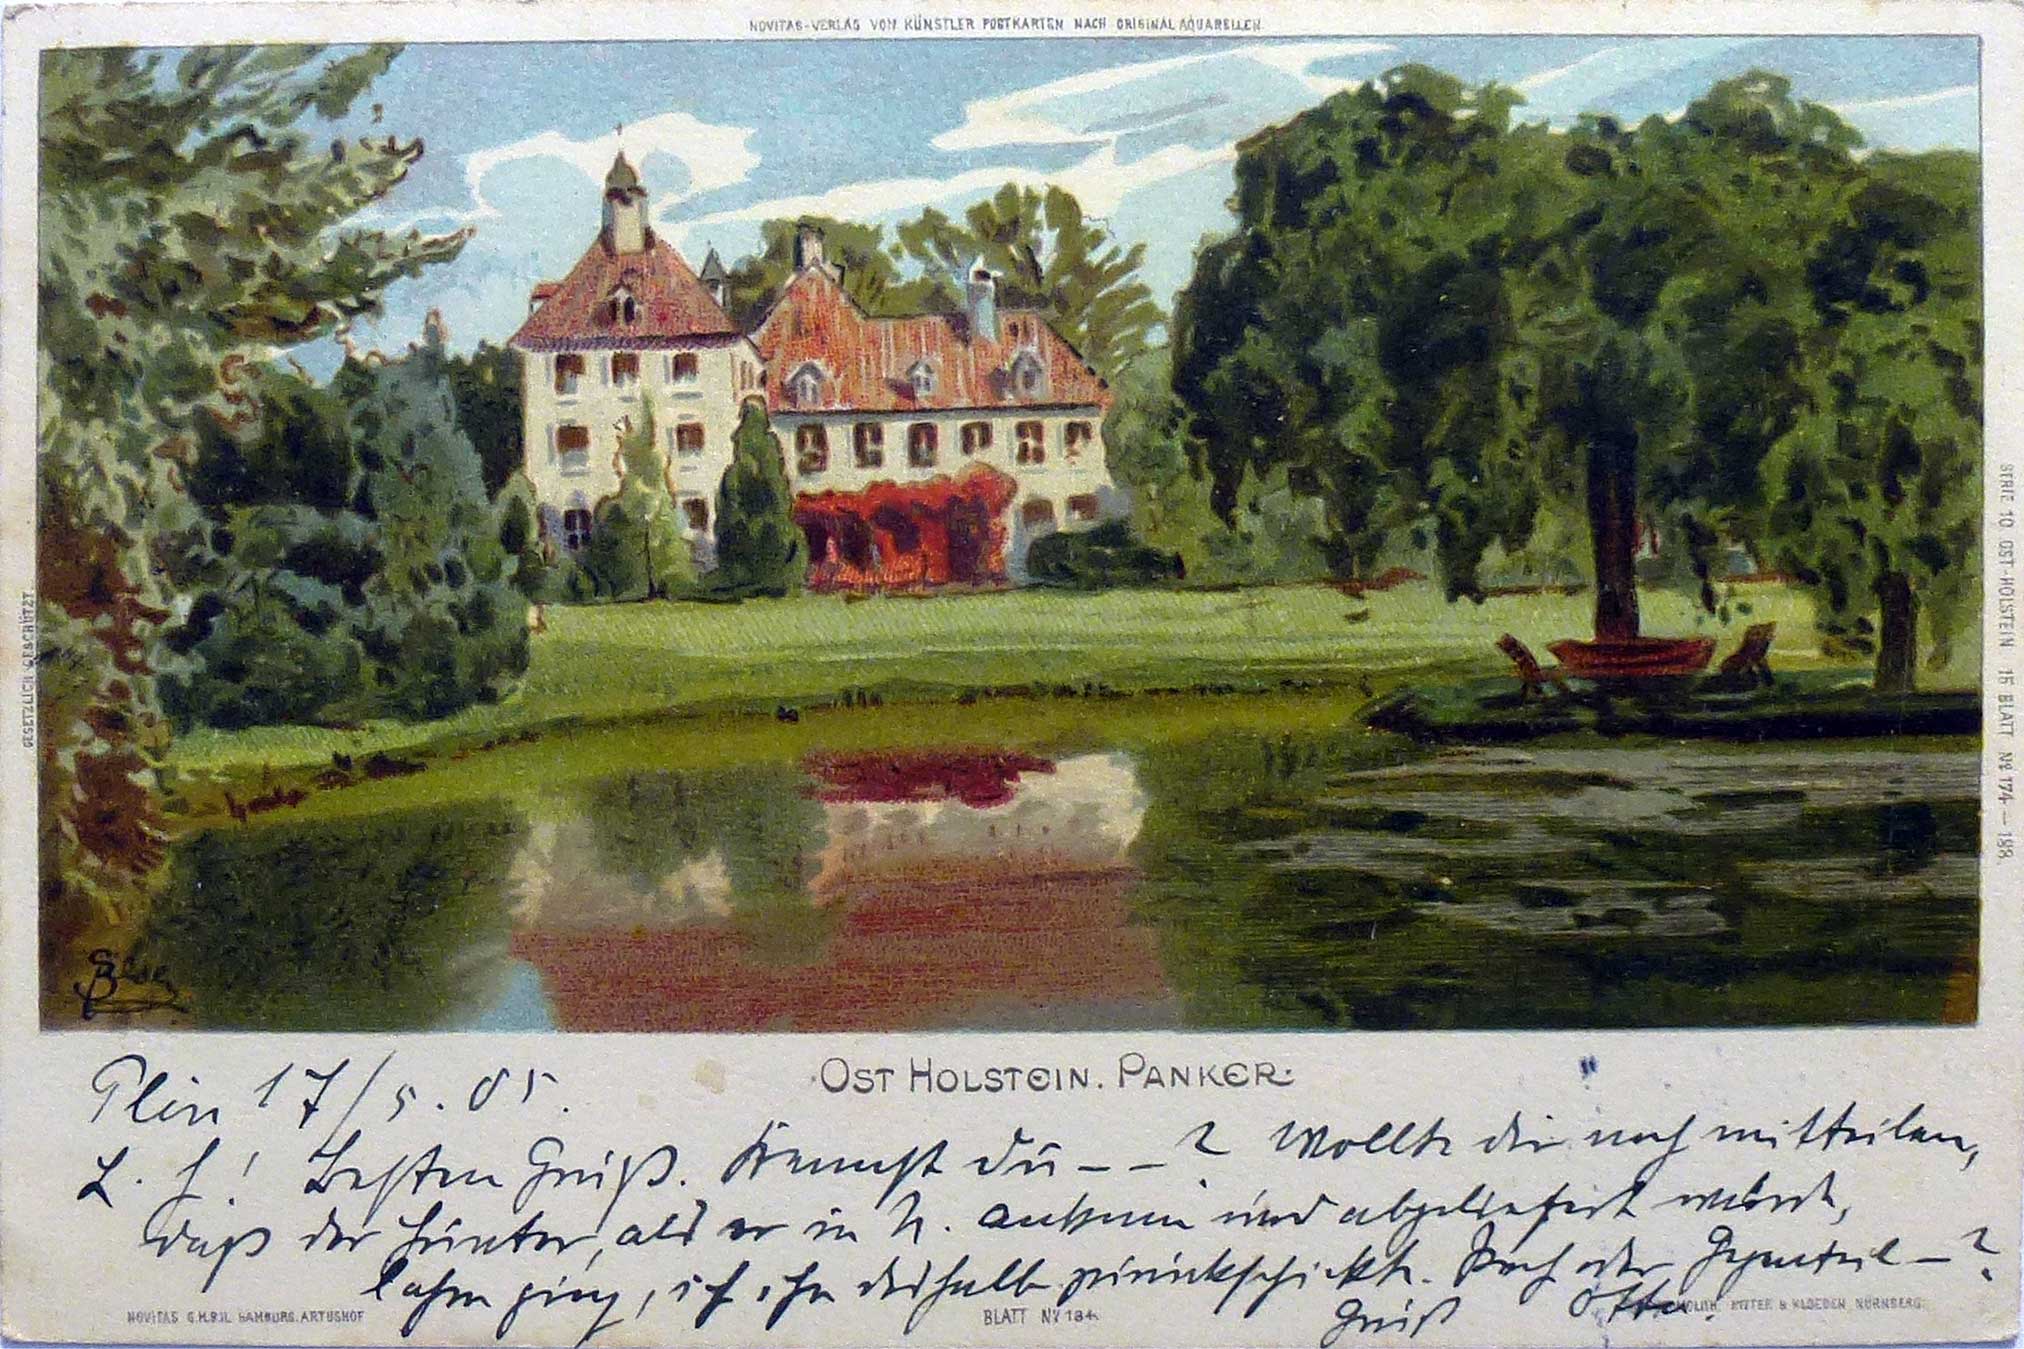 NOVITAS-VERLAG VON KÜNSTLER POSTKARTEN NACH ORIGINAL AQUARELLEN
GESETZLICH GESCHÜTZT
SERIE 10 OST-HOLSTEIN 15 BLATT No 174-188
OST HOLSTEIN. PANKER.
Plön 17/5. 05.
L. H! Besten Gruß. Kommst du -- ? Wollte dir noch mitteilen,
daß der Hunter, als er in N. ankam und abgeliefert wurde,
lahm ging, ich ihn deshalb zurückschickte. Pech oder Gegenteil - ?
Gruß Otto.
NOVITAS G.M.B.H. HAMBURG. ARTUSHOF
BLATT No 184
NÜRNBERG